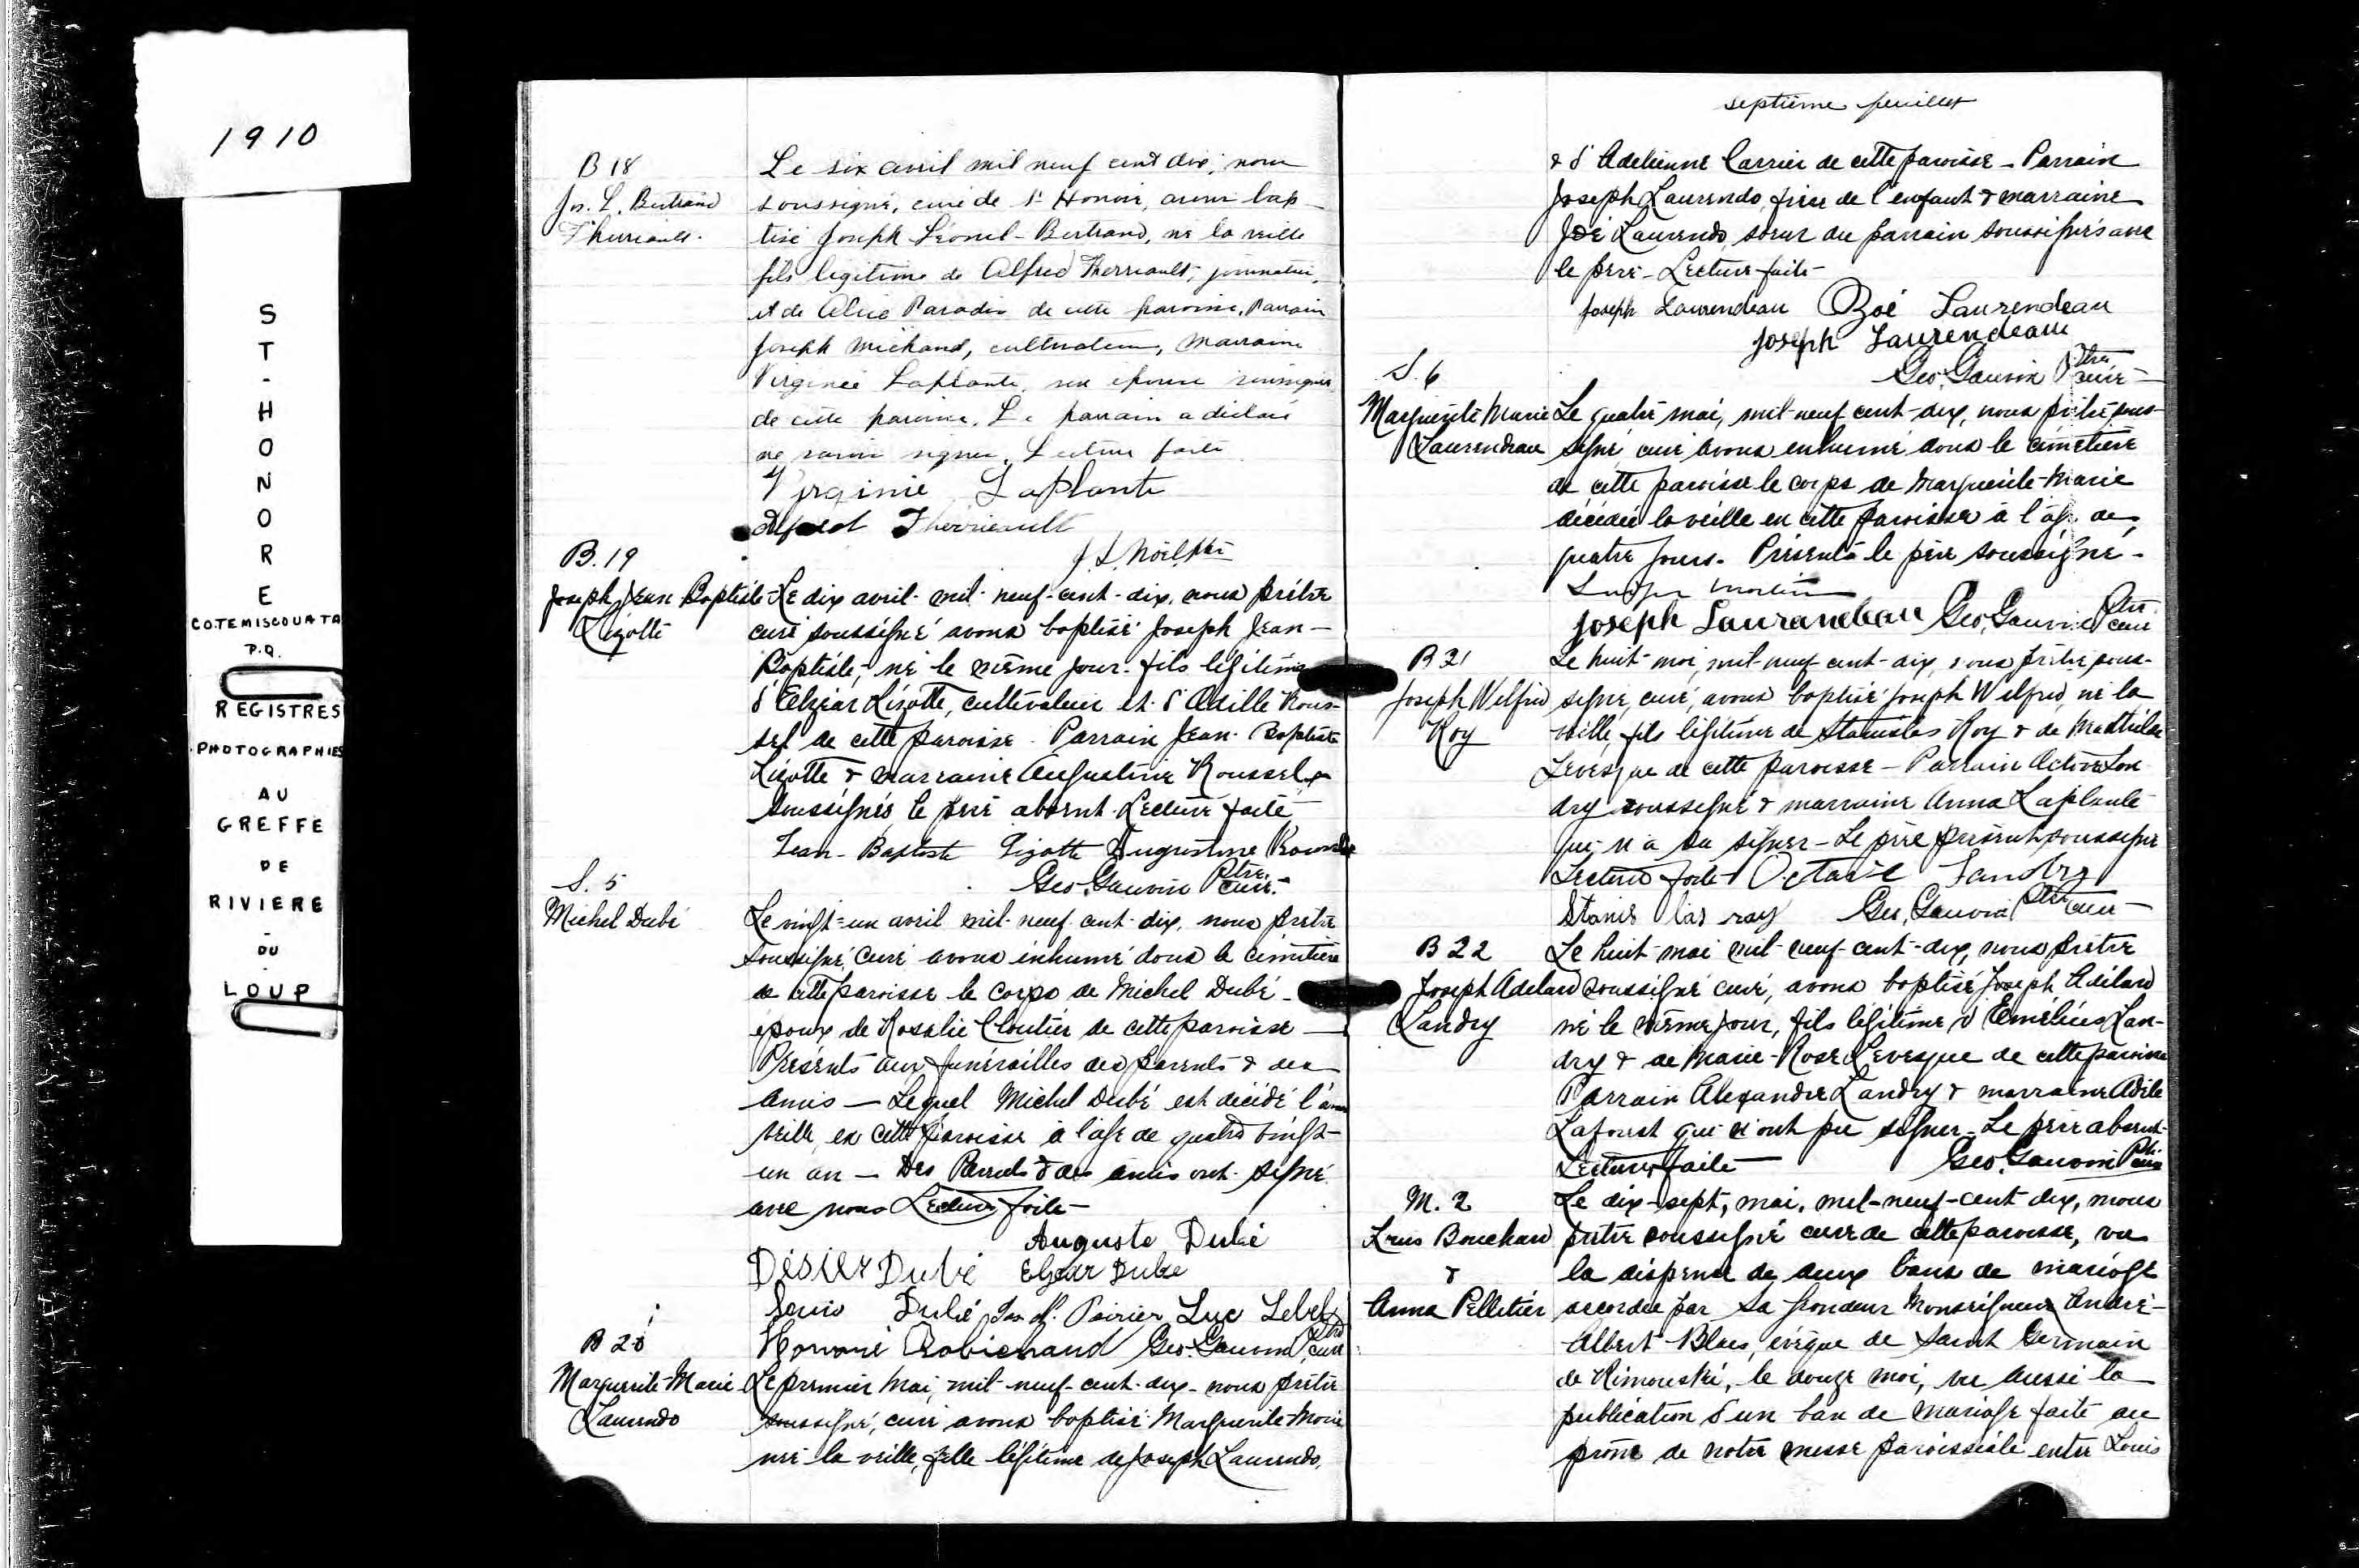 1910
ST-HONORE
CO.TEMISCOUATA
P.Q.
REGISTRES
PHOTOGRAPHIES
AU
GREFFE
DE
RIVIERE
-
DU
-
LOUP
B 18
Jos. L. Bertrand
Thérriault.
Le six avril mil neuf cent dix, nous
soussigné, curé de St Honoré, avons bap-
tisé Joseph Léonel-Bertrand, né la veille
fils légitime de Alfred Therriault, journalier,
et de Alice Paradis de cette paroisse. Parrain
Joseph Michaud, cultivateur, Marraine
Virginie Laplante, son épouse soussignée
de cette paroisse. Le parrain a déclaré
ne savoir signer. Lecture faite
Virginie Laplante
Alfred Thérrieault
J. L. Noël, Ptre
B. 19
Joseph Jean Baptiste
Lizotte
Le dix avril mil-neuf-cent-dix, nous prêtre
curé soussigné avons baptisé Joseph Jean-
Baptiste, né le même jour, fils légitime
d'Elzéar Lizotte, cultivateur et d'Odille Rous-
sel de cette paroisse. Parrain Jean-Baptiste
Lizotte & marraine Augustine Roussel
soussignés le père absent. Lecture faite
Jean-Baptiste Lizotte Augustine Roussel
Geo. Gauvin Ptre curé-
S. 5
Michel Dubé
Le vingt-un avril mil-neuf-cent-dix, nous prêtre
soussigné, curé avons inhumé dans le cimetière
de cette paroisse le corps de Michel Dubé-
époux de Rosalie Cloutier de cette paroisse —
Présents aux funérailles des parents & des
amis — Lequel Michel Dubé est décédé l'avant
veille, en cette paroisse à l'âge de quatre vingt-
un an — Des Parents & des amis ont signé
avec nous Lecture faite-
Auguste Dubé
Désiré Dubé Elzéar Dubé
Louis Dubé Poirier Luc Lebel
Honoré Robichaud Geo. Gauvin Ptre curé
B 20
Marguerite-Marie
Laurendo
Le premier mai, mil-neuf-cent-dix, nous prêtre
soussigné, curé avons baptisé Marguerite-Marie
née la veille, fille légitime de Joseph Laurendo,
septième feuillet
& d'Adelienne Carrier de cette paroisse - Parrain
Joseph Laurendo, frère de l'enfant & marraine
Zoé Laurendo, soeur du parrain soussignés avec
le père - Lecture faite -
Joseph Laurendeau Zoé Laurendeau
Joseph Laurendeau
Geo. Gauvin Ptre curé-
S. 6
Marguerite Marie
Laurendeau
Le quatre mai, mil-neuf-cent-dix, nous prêtre sous-
signé curé avons enhumé dans le cimetière
de cette paroisse le corps de Marguerite-Marie
décédée la veille en cette paroisse à l'âge de
quatre jours. Présents le père soussigné-
Ludger Morin
Joseph Laurandeau Geo. Gauvin Ptre curé
B 21
Joseph Welfrid
Roy
Le huit mai, mil-neuf-cent-dix, nous prêtre sous-
signé, curé, avons baptisé Joseph Wilfrid, né la
veille, fils légitime de Stanislas Roy & de Mathilde
Levesque de cette paroisse - Parrain Octave Lan
dry soussigné & marraine Anna Laplante
qui n'a su signer - Le père présent soussigné
Lecture faite Octave Landry
Stanis las roy Geo. Gauvin Ptre curé-
B 22
Joseph Adelard
Landry
Le huit mai mil-neuf-cent-dix, nous prêtre
soussigné curé, avons baptisé Joseph Adélard
né le même jour, fils légitime d'Emélius Lan-
dry & de Marie-Rose Levesque de cette paroisse
Parrain Alexandre Landry & marraine Adèle
Laforest qui n'ont pu signer. Le père absent-
Lecture faite — Geo. Gauvin Ptre curé
M. 2
Louis Bouchard
&
Anna Pelletier
Le dix-sept, mai, mil-neuf-cent dix, nous
prêtre soussigné curé de cette paroisse, vu
la dispense de deux bans de mariage
accordée par Sa Grandeur Monseigneur André-
Albert Blais, évêque de Saint Germain
de Rimouski, le douze mai, vu aussi la
publication d'un ban de mariage faite au
prône de notre messe paroissiale entre Louis